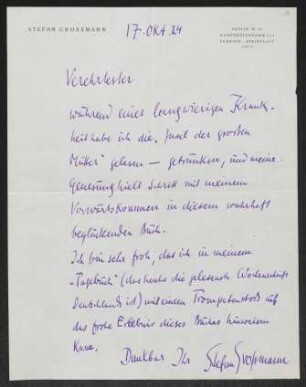 STEFAN GROSSMANN
17. OKT 24
BERLIN W
Verehrtester
während einer langwierigen Krank-
heit habe ich die „Insel der großen
Mutter" gelesen — getrunken, und meine
Genesung hielt Schritt mit meinem
Vorwärtskommen in diesem wahrhaft
beglückenden Buch.
Ich bin sehr froh, das ich in meinem
„Tagebuch" (das heute die gelesenste Wochenschrift
Deutschlands ist) mit einem Trompetenstoß auf
das frohe Erlebnis dieses Buches hinweisen
kann.
Dankbar Ihr Stefan Großmann